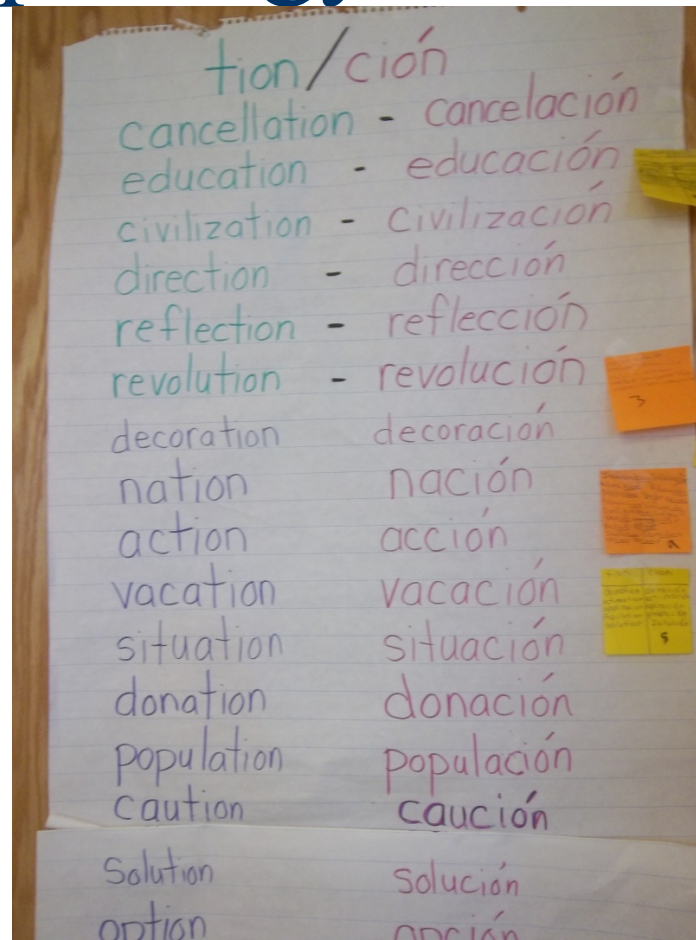 tion/ción
cancellation - cancelación
education - educación
civilization - civilización
direction - dirección
reflection - reflección
revolution - revolución
decoration decoración
nation nación
action acción
vacation vacación
situation situación
donation donación
population populación
caution caución
Solution Solución
option opción
3
9
5